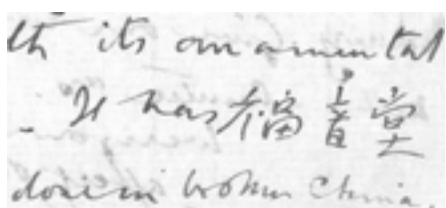 its ornamental
. It has 福音堂
done in broken China.